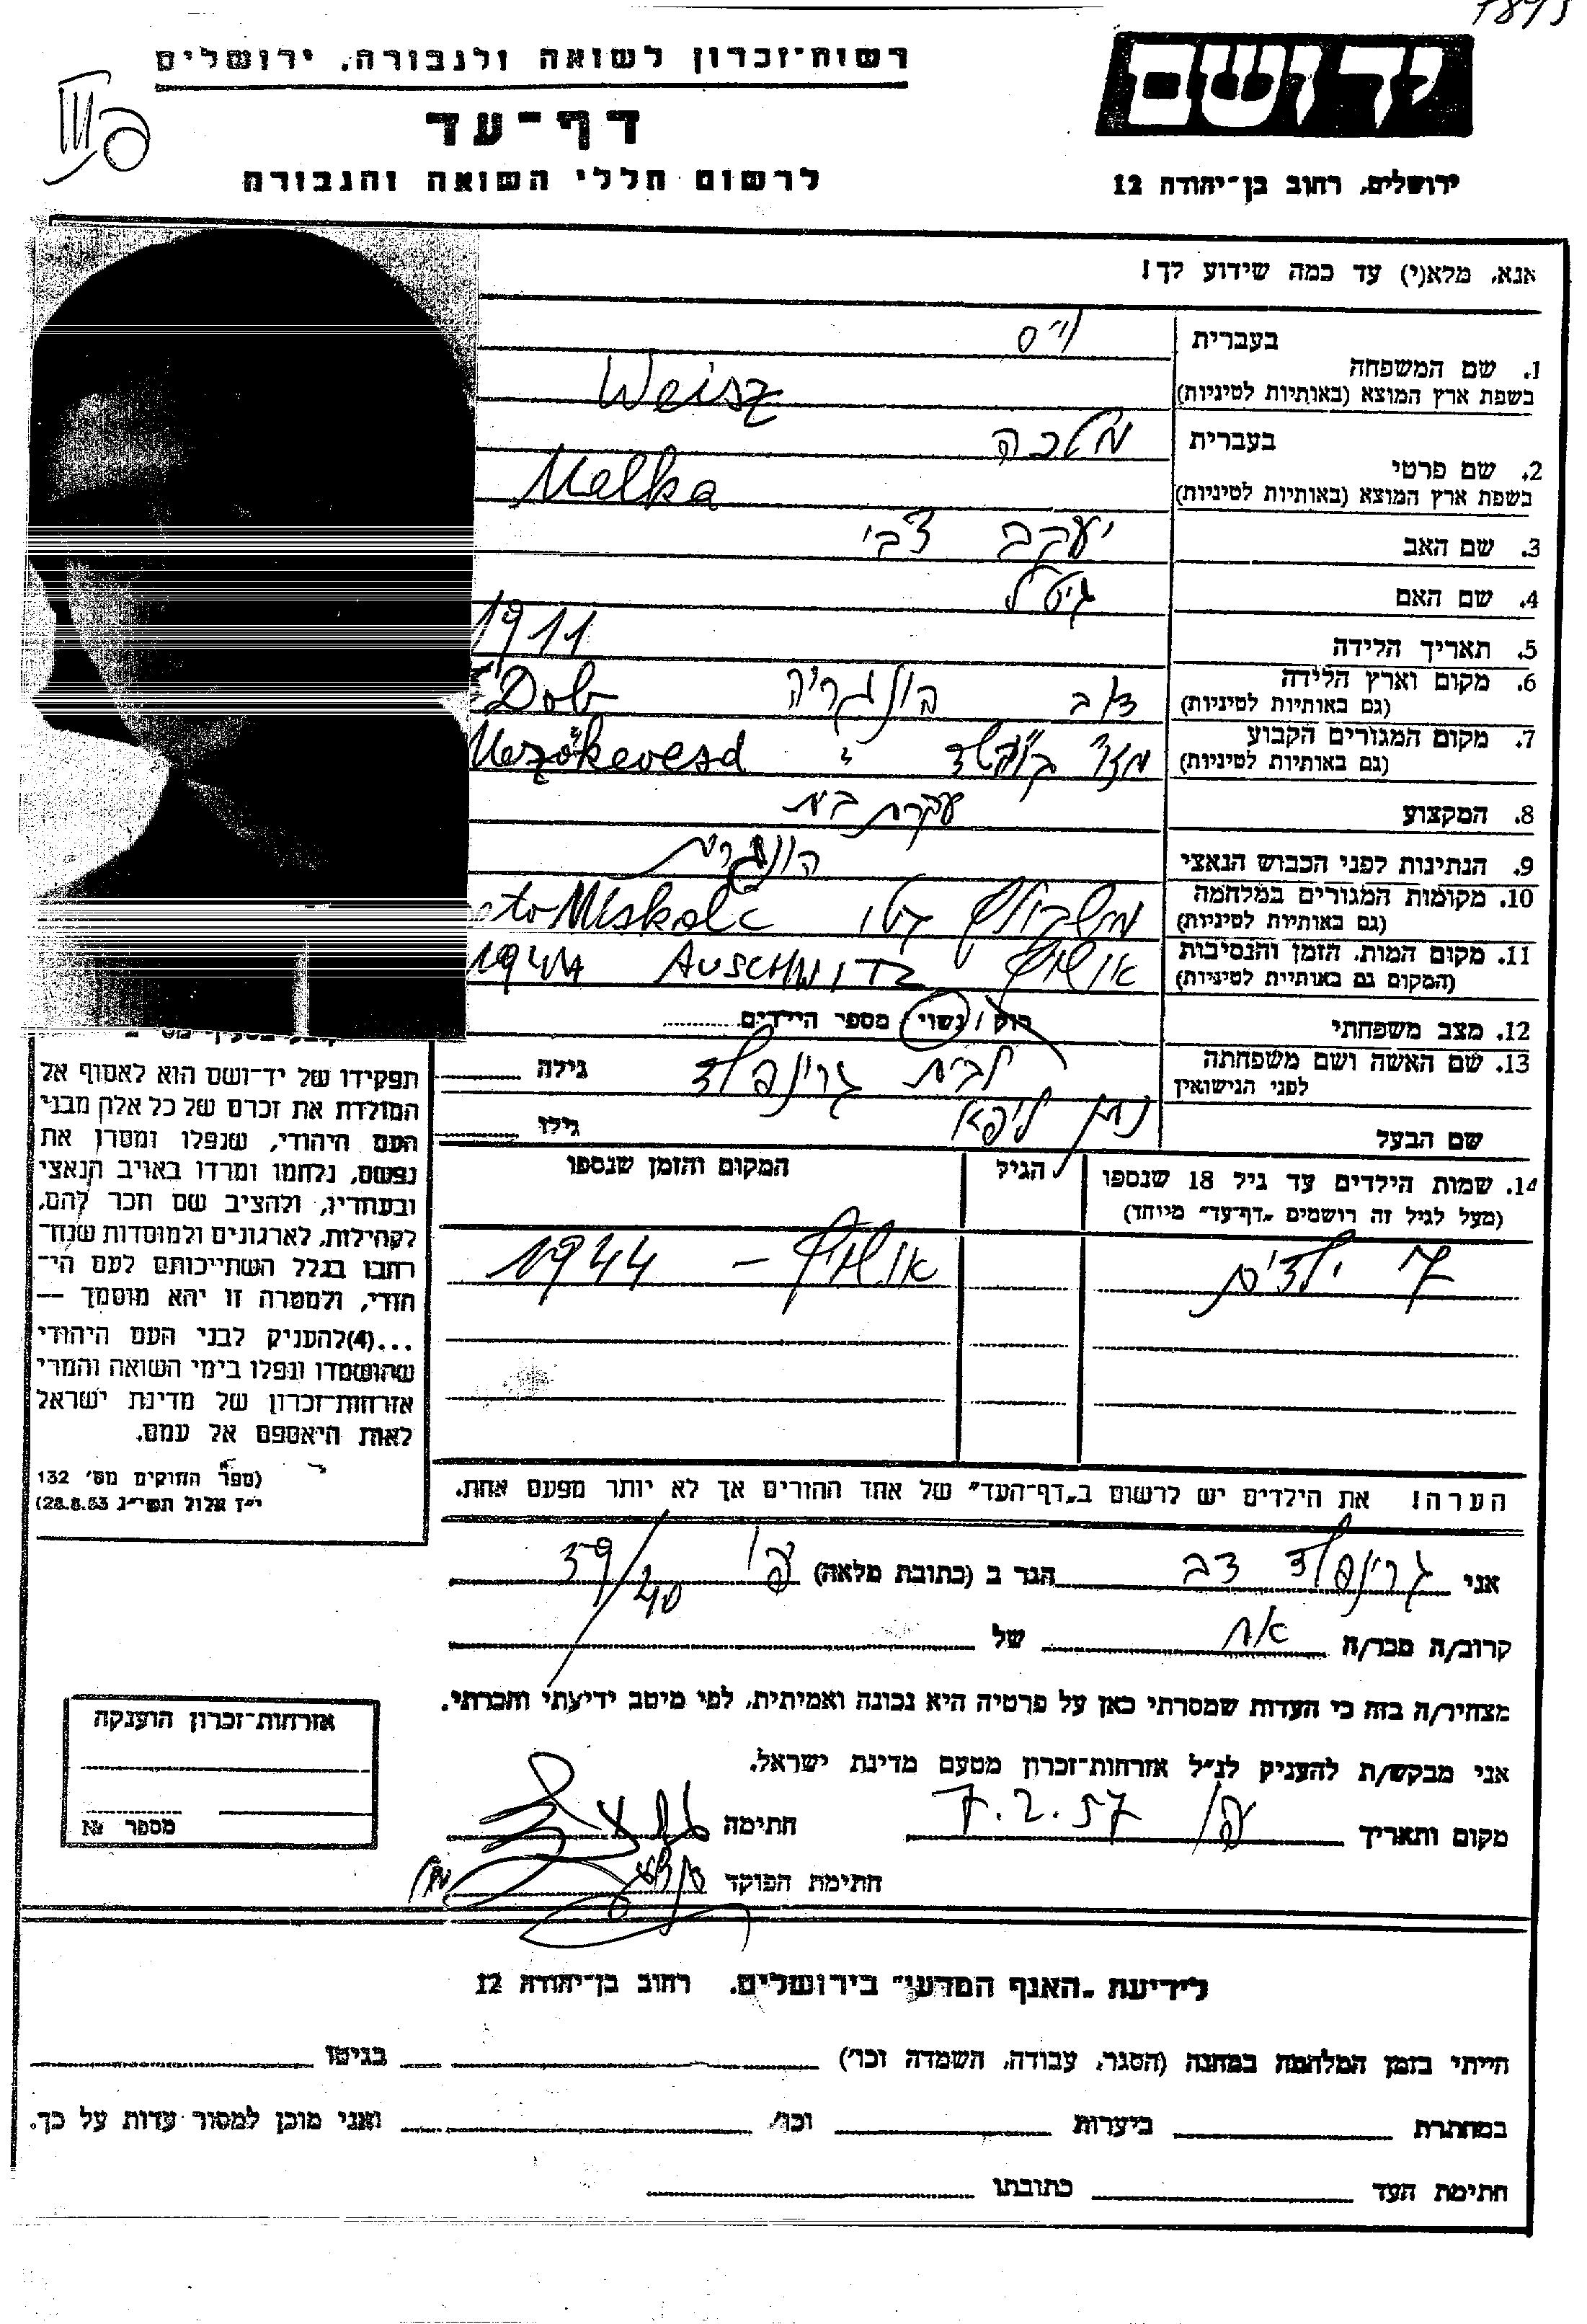 7895
רשות־זכרון לשואה ולגבורה, ירושלים
יד ושם
דף־עד
לרשום חללי השואה והגבורה
ירושלים, רחוב בן־יהודה 12
אנא, מלא(י) עד כמה שידוע לך!
1. שם המשפחה
בעברית וייס
בשפת ארץ המוצא (באותיות לטיניות) Weisz
2. שם פרטי
בעברית מלכה
בשפת ארץ המוצא (באותיות לטיניות) Melka
3. שם האב יעקב צבי
4. שם האם גיטל
5. תאריך הלידה 1911
6. מקום וארץ הלידה הונגריה Dob
(גם באותיות לטיניות)
7. מקום המגורים הקבוע Mezőkövesd
(גם באותיות לטיניות)
8. המקצוע עקרת בית
9. הנתינות לפני הכבוש הנאצי הונגרית
10. מקומות המגורים במלחמה Miskolc
(גם באותיות לטיניות)
11. מקום המות, הזמן והנסיבות אושויץ AUSCHWITZ 1944
(המקום גם באותיות לטיניות)
12. מצב משפחתי רוק / נשוי / מספר הילדים
13. שם האשה ושם משפחתה לבית גרינפלד גילה
לפני הנישואין
שם הבעל נתן ליפא גילו
14. שמות הילדים עד גיל 18 שנספו הגיל המקום והזמן שנספו
(מעל לגיל זה רושמים "דף־עד" מיוחד)
7 ילדים אושויץ – 1944
תפקידו של יד־ושם הוא לאסוף אל
המולדת את זכרם של כל אלה מבני
העם היהודי, שנפלו ומסרו את
נפשם, נלחמו ומרדו באויב הנאצי
ובעוזריו, ולהציב שם וזכר להם,
לקהילות, לארגונים ולמוסדות שנח־
רבו בגלל השתייכותם לעם הי־
הודי, ולמטרה זו יהא מוסמך —
...(4)להעניק לבני העם היהודי
שהושמדו ונפלו בימי השואה והמרי
אזרחות־זכרון של מדינת ישראל
לאות היאספם אל עמם.
(ספר החוקים מס' 132
י"ז אלול תשי"ג 28.8.53)
הערה! את הילדים יש לרשום ב„דף־העד" של אחד ההורים אך לא יותר מפעם אחת.
אני גרינפלד דב הגר ב (כתובת מלאה) עכו 59/40
קרוב/ה מכר/ה אח של
מצהיר/ה בזה כי העדות שמסרתי כאן על פרטיה היא נכונה ואמיתית, לפי מיטב ידיעתי והכרתי.
אני מבקש/ת להעניק לנ"ל אזרחות־זכרון מטעם מדינת ישראל.
מקום ותאריך עכו 7.2.57 חתימה
חתימת הפוקד
אזרחות־זכרון הוענקה
מספר №
לידיעת „האגף המדעי" בירושלים, רחוב בן־יהודה 12
הייתי בזמן המלחמה במחנה (הסגר, עבודה, השמדה וכו') בגיטו
במחתרת ביערות וכו' ואני מוכן למסור עדות על כך.
חתימת העד כתובתו